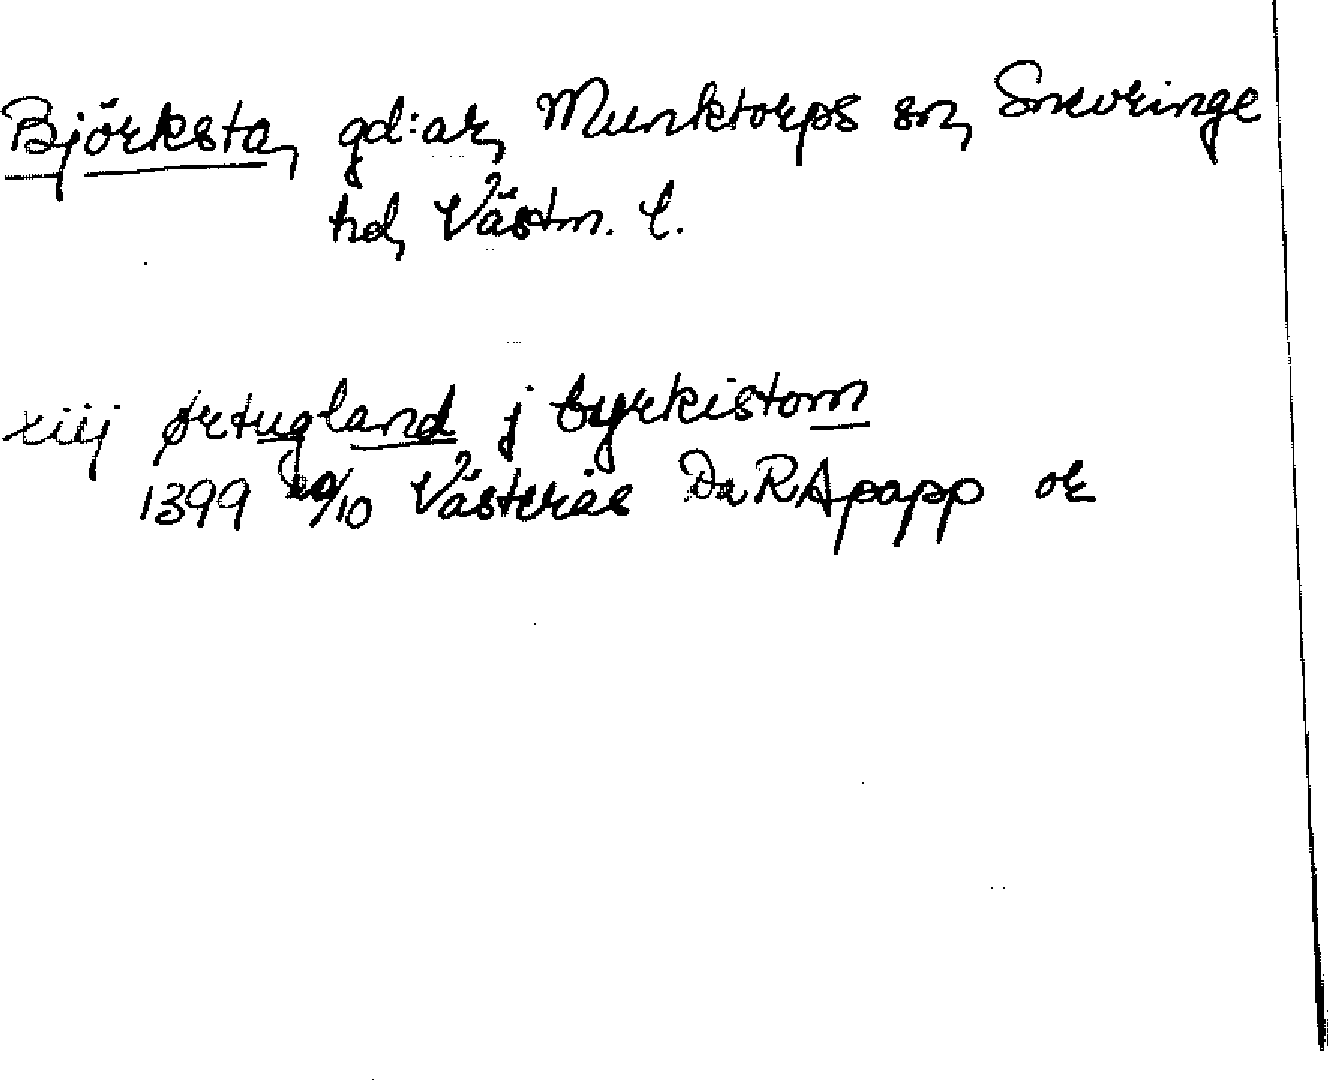 Björksta, gd:ar, Munktorps sn, Snevringe
hd, Västm. l.
xiij ørtugland j byrkistom
1399 20/10 Västerås Da RApapp or